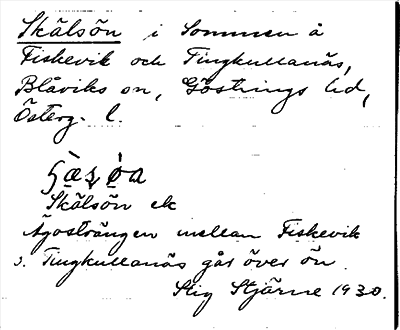 Skälsön i Sommen å
Fiskevik och Tingkullanäs,
Blåviks sn, Göstrings hd,
Österg. l.
Skälsön ek
Ägosträngen mellan Fiskevik
o. Tingkullanäs går över ön.
Stig Stjärne 1930.